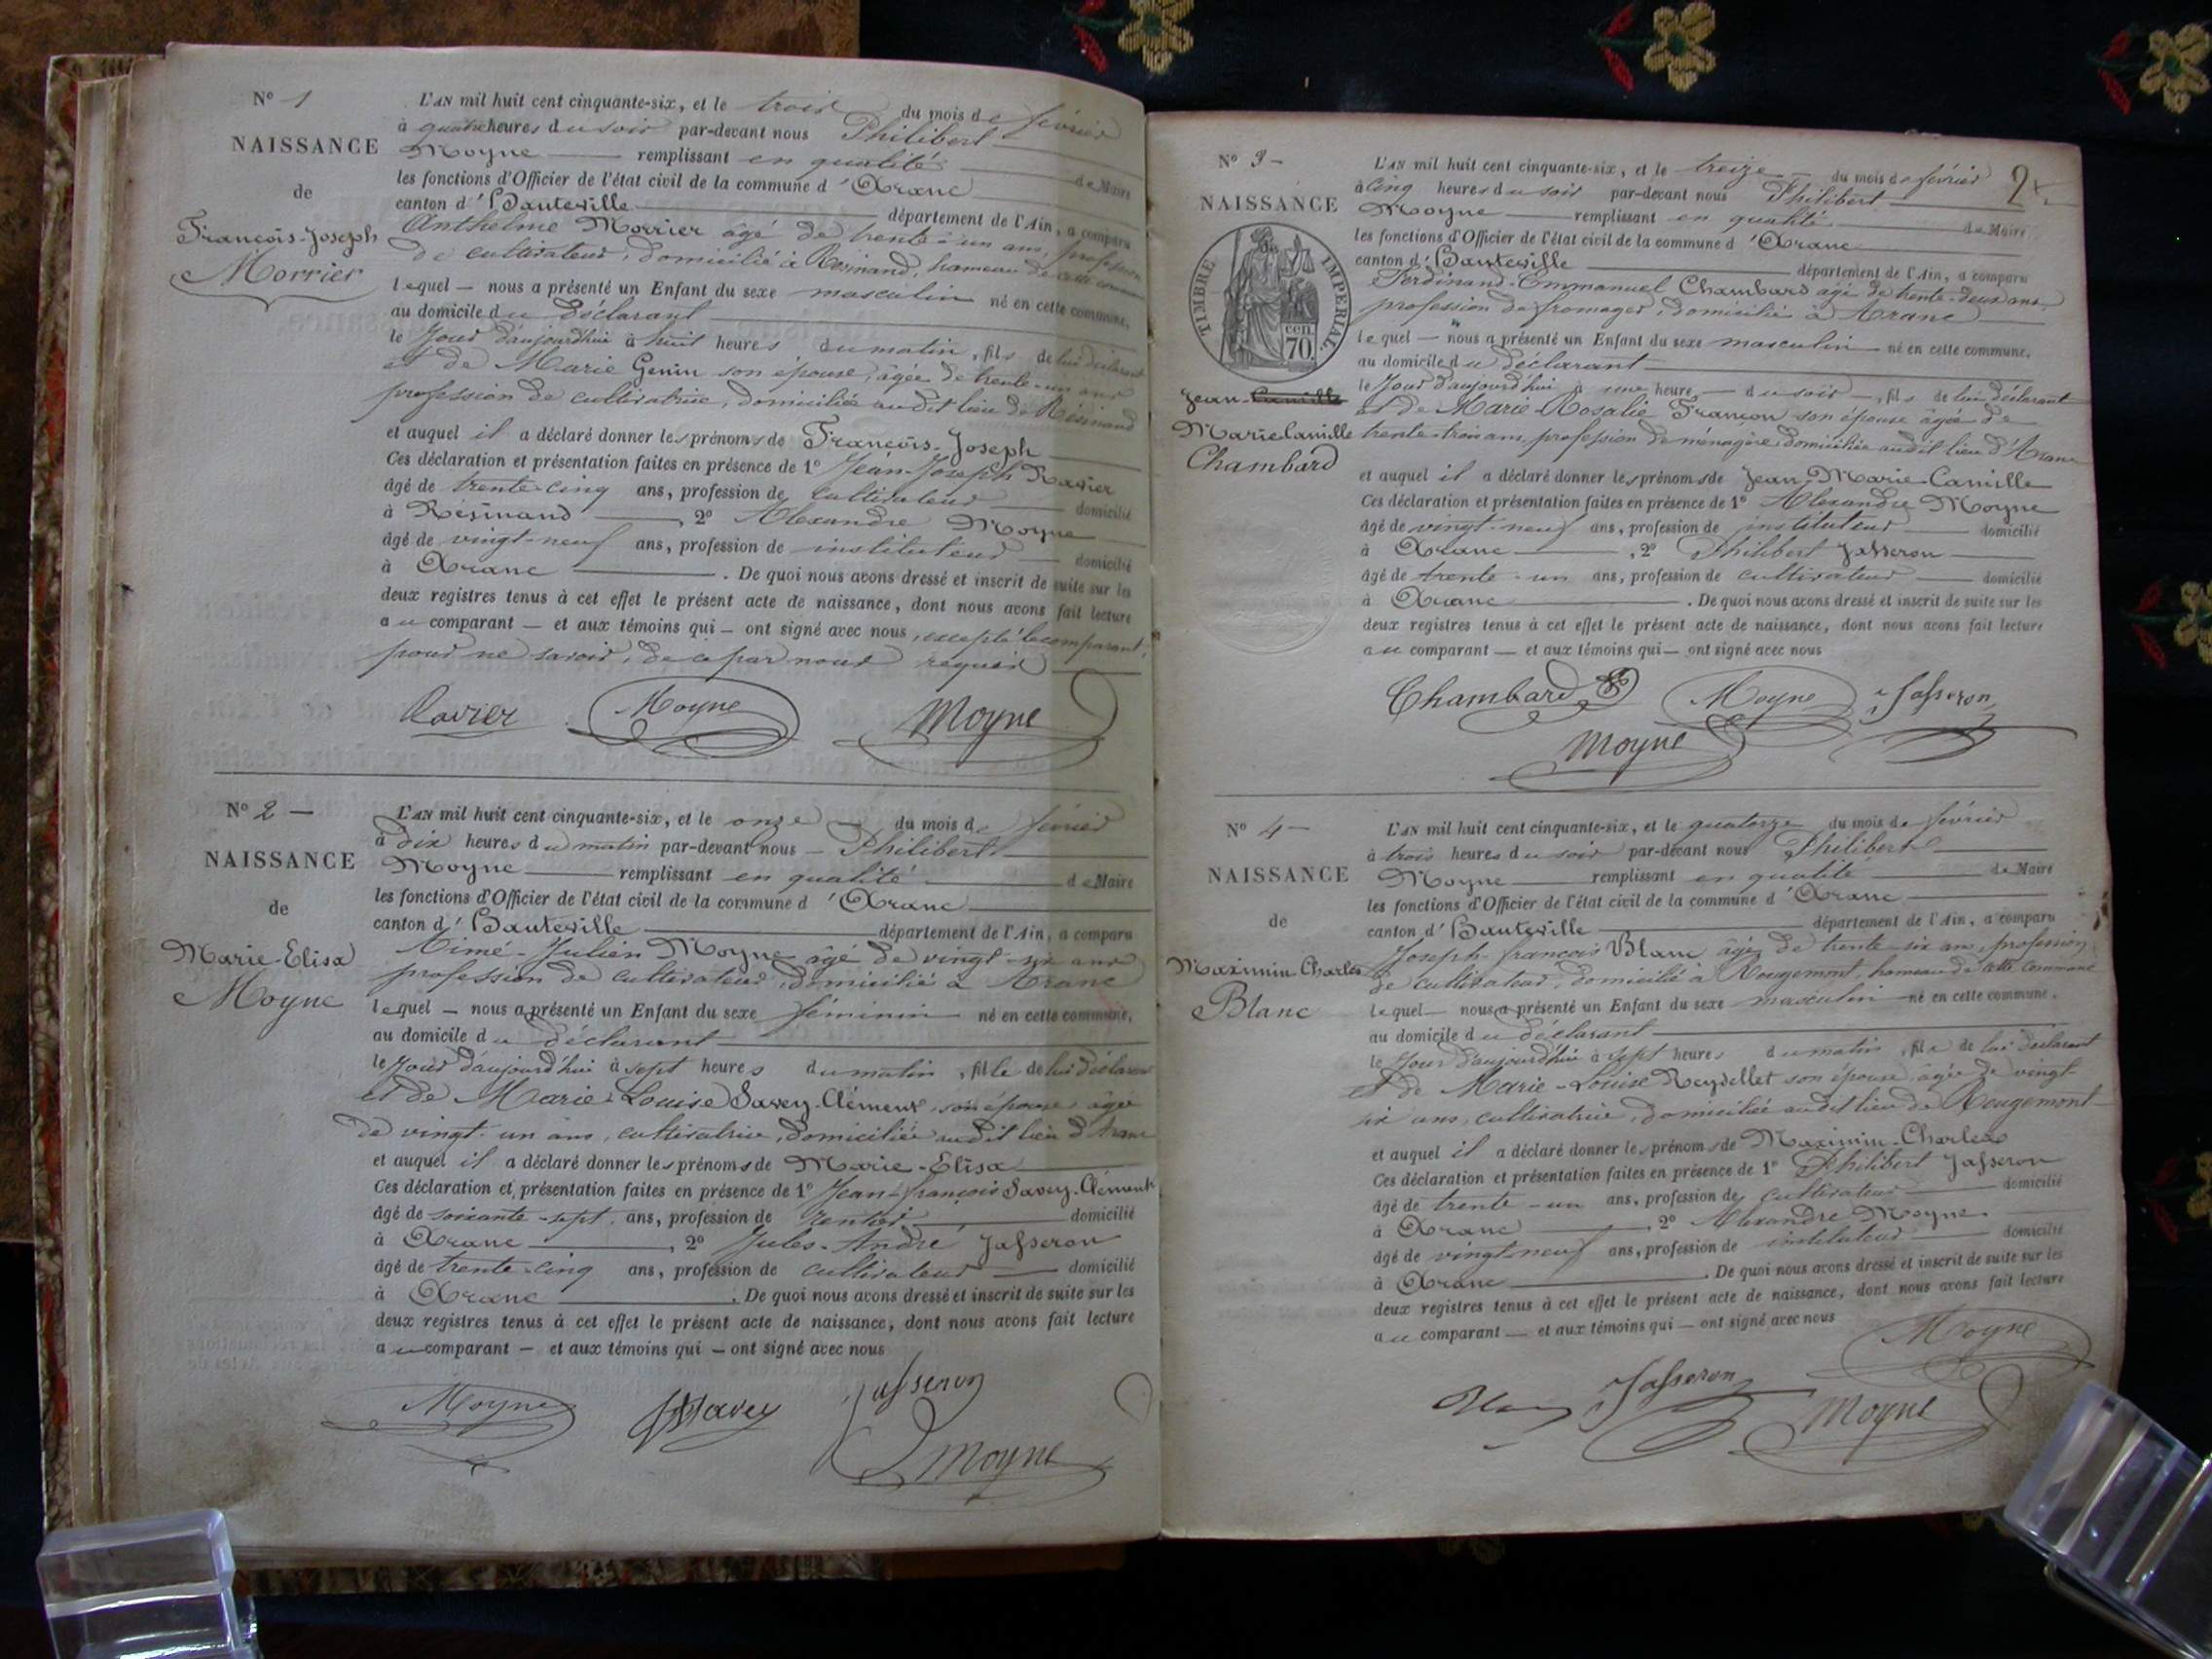 N° 1
NAISSANCE
de
François-Joseph
Morrier
L'AN mil huit cent cinquante-six, et le trois du mois de février
à quatre heures du soir par-devant nous Philibert
Moyne remplissant en qualité de Maire
les fonctions d'Officier de l'état civil de la commune d'Aranc
canton d'Hauteville département de l'Ain, a comparu
Anthelme Morrier âgé de trente-un ans, profession
de cultivateur, domicilié à Résinand, hameau de cette commune
lequel nous a présenté un Enfant du sexe masculin né en cette commune,
au domicile du déclarant
le jour d'aujourd'hui à huit heures du matin, fils de lui déclarant
et de Marie Genin son épouse, âgée de trente-un ans
profession de cultivatrice, domiciliée audit lieu de Résinand
et auquel il a déclaré donner les prénoms de François-Joseph
Ces déclaration et présentation faites en présence de 1° Jean-Joseph Ravier
âgé de trente-cinq ans, profession de cultivateur domicilié
à Résinand, 2° Alexandre Moyne
âgé de vingt-neuf ans, profession de instituteur domicilié
à Aranc. De quoi nous avons dressé et inscrit de suite sur les
deux registres tenus à cet effet le présent acte de naissance, dont nous avons fait lecture
au comparant et aux témoins qui ont signé avec nous, excepté le comparant,
pour ne savoir, de ce par nous requis
Ravier Moyne Moyne
N° 2
NAISSANCE
de
Marie-Elisa
Moyne
L'AN mil huit cent cinquante-six, et le onze du mois de février
à dix heures du matin par-devant nous Philibert
Moyne remplissant en qualité de Maire
les fonctions d'Officier de l'état civil de la commune d'Aranc
canton d'Hauteville département de l'Ain, a comparu
Aimé-Julien Moyne âgé de vingt-six ans
profession de cultivateur, domicilié à Aranc
lequel nous a présenté un Enfant du sexe féminin né en cette commune,
au domicile du déclarant
le jour d'aujourd'hui à sept heures du matin, fille de lui déclarant
et de Marie-Louise Savey-Clément, son épouse âgée
de vingt-un ans, cultivatrice, domiciliée audit lieu d'Aranc
et auquel il a déclaré donner les prénoms de Marie-Elisa
Ces déclaration et présentation faites en présence de 1° Jean-François Savey-Clément
âgé de soixante-sept ans, profession de rentier domicilié
à Aranc, 2° Jules-André Jasseron
âgé de trente-cinq ans, profession de cultivateur domicilié
à Aranc. De quoi nous avons dressé et inscrit de suite sur les
deux registres tenus à cet effet le présent acte de naissance, dont nous avons fait lecture
au comparant et aux témoins qui ont signé avec nous
Moyne Savey Jasseron
Moyne
2
N° 3
NAISSANCE
TIMBRE IMPÉRIAL
70 cen.
Jean-Camille
Marie Camille
Chambard
L'AN mil huit cent cinquante-six, et le treize du mois de février
à cinq heures du soir par-devant nous Philibert
Moyne remplissant en qualité de Maire
les fonctions d'Officier de l'état civil de la commune d'Aranc
canton d'Hauteville département de l'Ain, a comparu
Ferdinand-Emmanuel Chambard âgé de trente-deux ans
profession de fromager, domicilié à Aranc
lequel nous a présenté un Enfant du sexe masculin né en cette commune,
au domicile du déclarant
le jour d'aujourd'hui à une heure du soir, fils de lui déclarant
et de Marie-Rosalie Françon son épouse âgée de
trente-trois ans, profession de ménagère domiciliée audit lieu d'Aranc
et auquel il a déclaré donner les prénoms de Jean-Marie-Camille
Ces déclaration et présentation faites en présence de 1° Alexandre Moyne
âgé de vingt-neuf ans, profession de instituteur domicilié
à Aranc, 2° Philibert Jasseron
âgé de trente-un ans, profession de cultivateur domicilié
à Aranc. De quoi nous avons dressé et inscrit de suite sur les
deux registres tenus à cet effet le présent acte de naissance, dont nous avons fait lecture
au comparant et aux témoins qui ont signé avec nous
Chambard Moyne Jasseron
Moyne
N° 4
NAISSANCE
de
Maximin-Charles
Blanc
L'AN mil huit cent cinquante-six, et le quatorze du mois de février
à trois heures du soir par-devant nous Philibert
Moyne remplissant en qualité de Maire
les fonctions d'Officier de l'état civil de la commune d'Aranc
canton d'Hauteville département de l'Ain, a comparu
Joseph-François Blanc âgé de trente-six ans, profession
de cultivateur, domicilié à Rougemont, hameau de cette commune
lequel nous a présenté un Enfant du sexe masculin né en cette commune,
au domicile du déclarant
le jour d'aujourd'hui à sept heures du matin, fils de lui déclarant
et de Marie-Louise Reydellet son épouse âgée de vingt-
six ans, cultivatrice, domiciliée audit lieu de Rougemont
et auquel il a déclaré donner les prénoms de Maximin-Charles
Ces déclaration et présentation faites en présence de 1° Philibert Jasseron
âgé de trente-un ans, profession de cultivateur domicilié
à Aranc, 2° Alexandre Moyne
âgé de vingt-neuf ans, profession de instituteur domicilié
à Aranc. De quoi nous avons dressé et inscrit de suite sur les
deux registres tenus à cet effet le présent acte de naissance, dont nous avons fait lecture
au comparant et aux témoins qui ont signé avec nous
Moyne
Blanc Jasseron Moyne